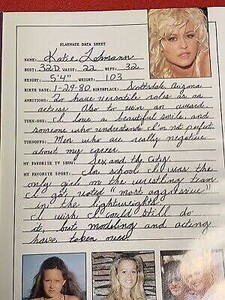 PLAYMATE DATA SHEET
NAME: Katie Lohmann
BUST: 32D WAIST: 22 HIPS: 32
HEIGHT: 5'4" WEIGHT: 103
BIRTH DATE: 1-29-80 BIRTHPLACE: Scottsdale, Arizona
AMBITIONS: To have versatile roles as an
actress. Also to win an award.
TURN-ONS: I love a beautiful smile, and
someone who understand I'm not perfect.
TURNOFFS: Men who are really negative
about my career.
MY FAVORITE TV SHOW: Sex and the City.
MY FAVORITE SPORT: In school I was the
only girl on the wrestling team
I was voted "most aggressive"
in the lightweights.
I wish I could still do
it, but modeling and acting
have taken over.